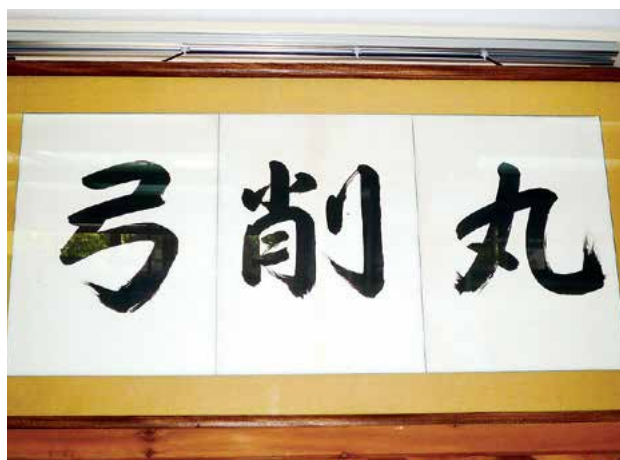 弓削丸